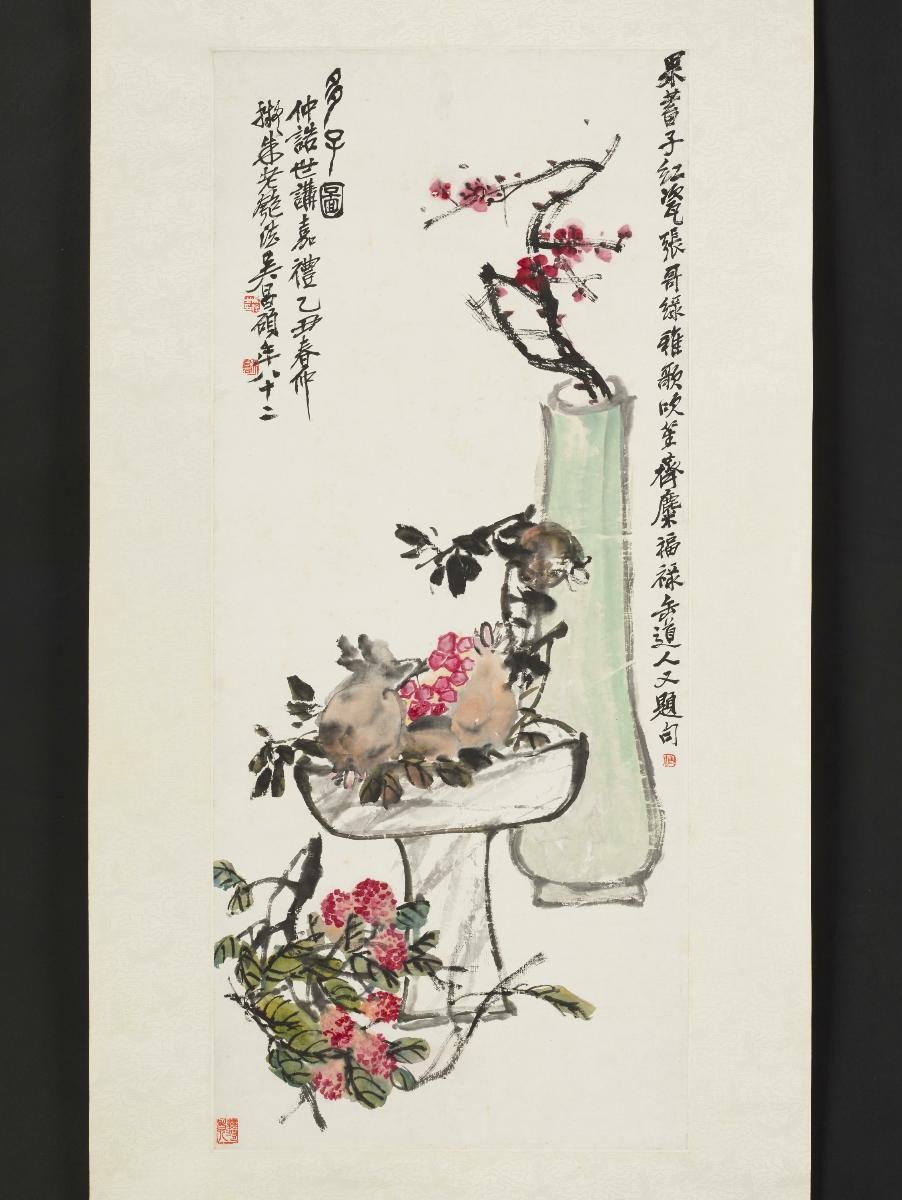 果蓄子紅瓷張哥綠雅歌吹笙齊麋福祿缶道人又題句
多子圖
仲誥世講嘉禮乙丑春仲
擬朱老匏法吳昌碩年八十二